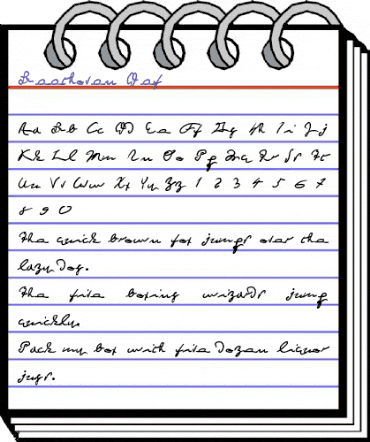 Beethoven Oet
Aa Bb Cc Dd Ee Ff Gg Hh Ii Jj
Kk Ll Mm Nn Oo Pp Qq Rr Ss Tt
Uu Vv Ww Xx Yy Zz 1 2 3 4 5 6 7
8 9 0
The quick brown fox jumps over the
lazy dog.
The five boxing wizards jump
quickly.
Pack my box with five dozen liquor
jugs.